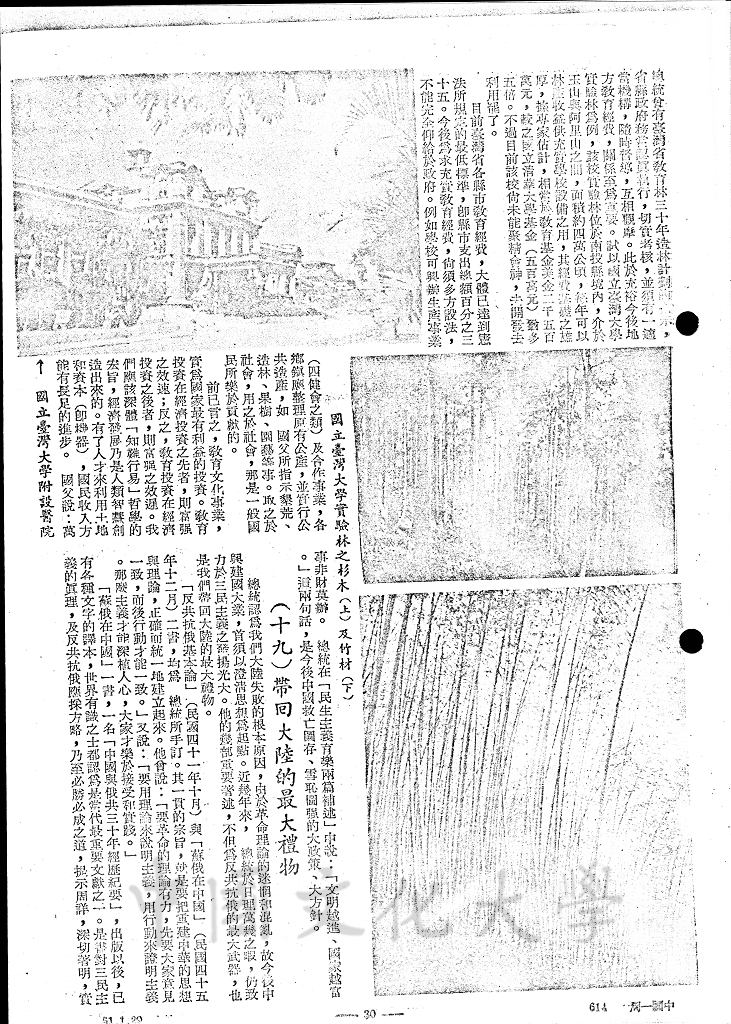 總統曾有臺灣省教育林三十年造林計劃
省縣政府務當認真執行,切實考核,並須有一適
當機構,隨時督導,互相觀摩。此於充裕今後地
方教育經費,關係至為重要。試以國立臺灣大學
實驗林為例,該校實驗林位於南投縣境內,介於
玉山與阿里山之間,面積約四萬公頃,每年可以
林產收益供充實學校設備之用,其經費基礎之雄
厚,據專家估計,相當於教育基金美金二千五百
萬元,較之國立清華大學基金(五百萬元)數多
五倍。不過目前該校尚未能聚精會神,去開發去
利用罷了。
目前臺灣省各縣市教育經費,大體已達到憲
法所規定的最低標準,卽縣市支出總額百分之三
十五。今後為求充實教育經費,尙須多方設法,
不能完全仰給於政府。例如學校可興辦生產事業
(四健會之類)及合作事業,各
鄉鎮應整理原有公產,並實行公
共造產,如 國父所指示墾荒、
造林、果樹、園藝等事。取之於
社會,用之於社會,那是一般國
民所樂於貢獻的。
前已言之,教育文化事業,
實為國家最有利益的投資。教育
投資在經濟投資之先者,則富强
之效速;反之,教育投資在經濟
投資之後者,則富强之效遲。我
們應該深體「知難行易」哲學的
宏旨,經濟發展乃是人類智慧創
造出來的。有了人才來利用土地
和資本(卽機器),國民收入方
能有長足的進步。 國父說:萬
↑ 國立臺灣大學附設醫院
國立臺灣大學實驗林之杉木(上)及竹材(下)
事非財莫辦。 總統在「民生主義育樂兩篇補述」中說:「文明越進、國家越富
。」這兩句話,是今後中國救亡圖存、雪恥圖强的大政策、大方針。
(十九)帶回大陸的最大禮物
總統認為我們大陸失敗的根本原因,由於革命理論的迷惘和混亂,故今後中
興建國大業,首須以澄清思想為起點。近幾年來, 總統於日理萬幾之暇,仍致
力於三民主義之發揚光大。他的幾部重要著述,不但為反共抗俄的最大武器,也
是我們帶回大陸的最大禮物。
「反共抗俄基本論」(民國四十一年十月)與「蘇俄在中國」(民國四十五
年十二月)二書,均為 總統所手訂。其一貫的宗旨,就是要把重建中華的思想
與理論,正確而統一地建立起來。他曾說:「要革命的理論有力,先要大家意見
一致,而後行動才能一致。」又說:「要用理論來說明主義,用行動來證明主義
。那麽主義才能深植人心,大家才樂於接受和實踐。」
「蘇俄在中國」一書,一名「中國與俄共三十年經歷紀要」,出版以後,已
有各種文字的譯本,世界有識之士都認為是當代最重要文獻之一。是書對三民主
義的真理,及反共抗俄應採方略,乃至必勝必成之道,提示周詳,深切著明,實
文化大學
51.1.29
— 30 —
614 中國一周